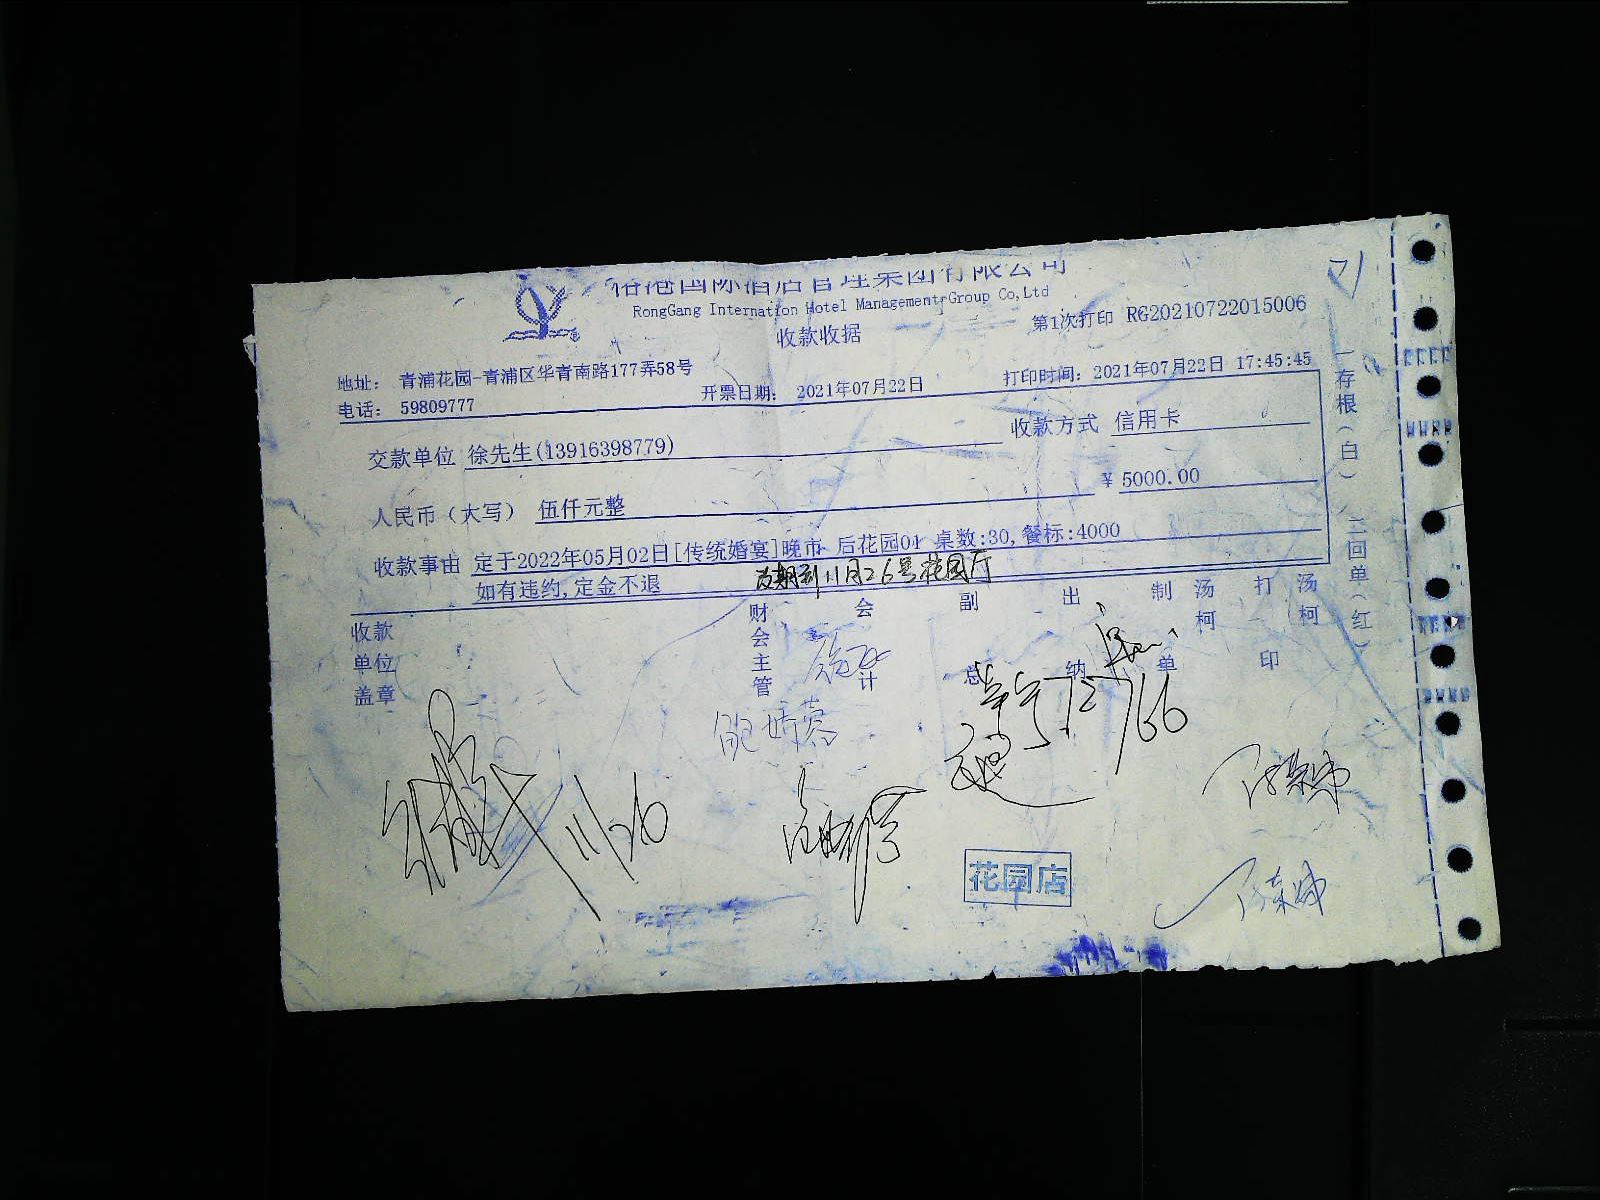 国际酒店管理集团有限公司
RongGang Internation Hotel Management Group Co,Ltd
收款收据
第1次打印 RG20210722015006
71
地址： 青浦花园-青浦区华青南路177弄58号
电话： 59809777
开票日期： 2021年07月22日
打印时间：2021年07月22日 17:45:45
交款单位 徐先生(13916398779)
收款方式 信用卡
人民币（大写） 伍仟元整
¥ 5000.00
收款事由 定于2022年05月02日[传统婚宴]晚市 后花园01 桌数:30,餐标:4000
如有违约,定金不退
改期到11月26号花园厅
收款单位盖章
财会主管
会计
副总
出纳
制单
汤柯
打印
汤柯
一存根（白） 二回单（红）
11/26
花园店